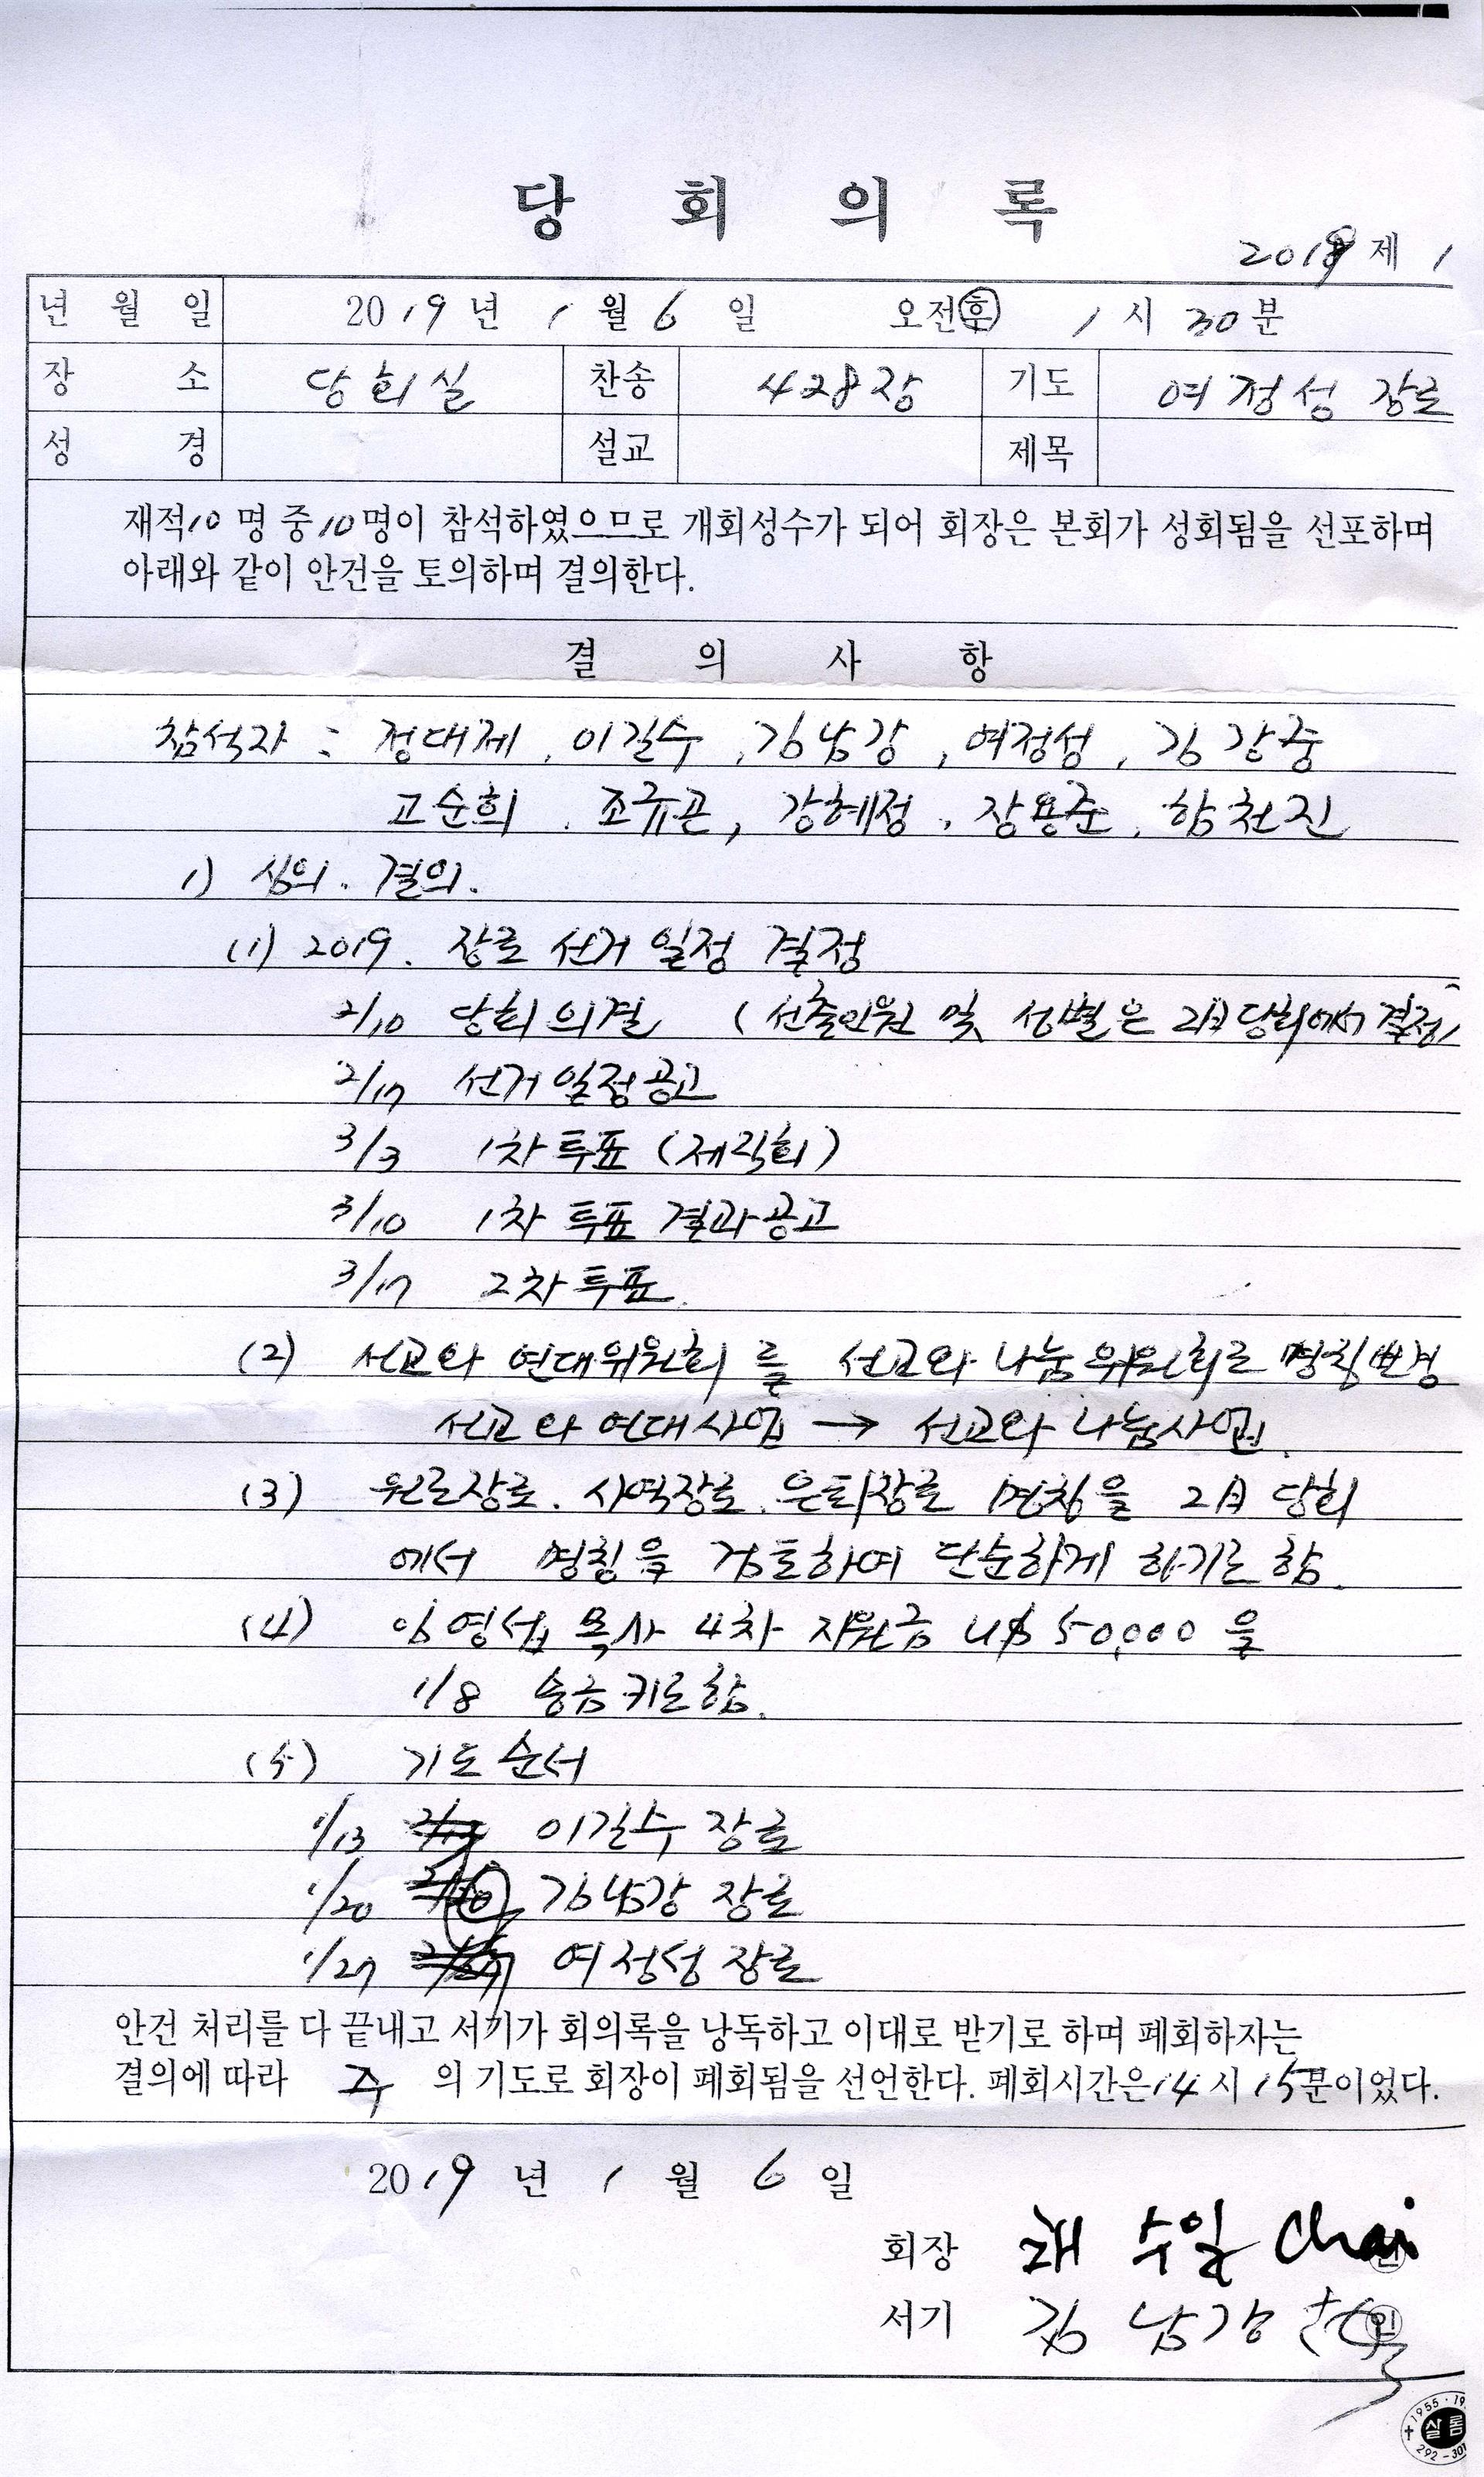 당 회 의 록
2019 제 1
년 월 일 2019 년 1 월 6 일 오전후 1 시 30 분
장 소 당회실 찬송 428장 기도 여정성 장로
성 경 설교 제목
재적10 명 중 10명이 참석하였으므로 개회성수가 되어 회장은 본회가 성회됨을 선포하며
아래와 같이 안건을 토의하며 결의한다.
결 의 사 항
참석자 : 정대제, 이길수, 김남강, 여정성, 김강중
고순희, 조규곤, 강혜정, 장용준, 함천진
1) 심의. 결의.
(1) 2019. 장로 선거 일정 결정
2/10 당회 의결 (선출인원 및 성별은 2月당회에서 결정)
2/17 선거일정공고
3/3 1차 투표 (제직회)
3/10 1차 투표 결과공고
3/17 2차 투표.
(2) 선교와 연대위원회를 선교와 나눔위원회로 명칭변경
선교와 연대사업 → 선교와 나눔사업.
(3) 원로장로. 사역장로. 은퇴장로 명칭을 2月 당회
에서 명칭을 검토하여 단순하게 하기로 함.
(4) 임영섭 목사 4차 지원금 U$ 50,000 을
1/8 송금키로함.
(5) 기도순서
1/13 이길수 장로
1/20 김남강 장로
1/27 여정성 장로
안건 처리를 다 끝내고 서기가 회의록을 낭독하고 이대로 받기로 하며 폐회하자는
결의에 따라 주 의 기도로 회장이 폐회됨을 선언한다. 폐회시간은 14 시 15분이었다.
2019 년 1 월 6 일
회장 채 수일 Chai 인
서기 김 남강 인
1955 · 19
살롬
292-301